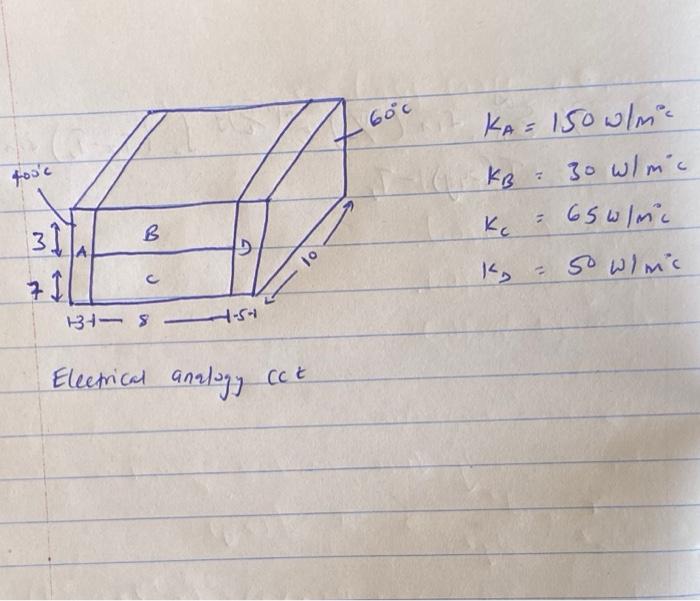 400°C
60°C
3
7
A
B
C
D
3 8 5
10
KA = 150 W/m°C
KB = 30 W/m°C
KC = 65 W/m°C
KD = 50 W/m°C
Electrical analogy cct